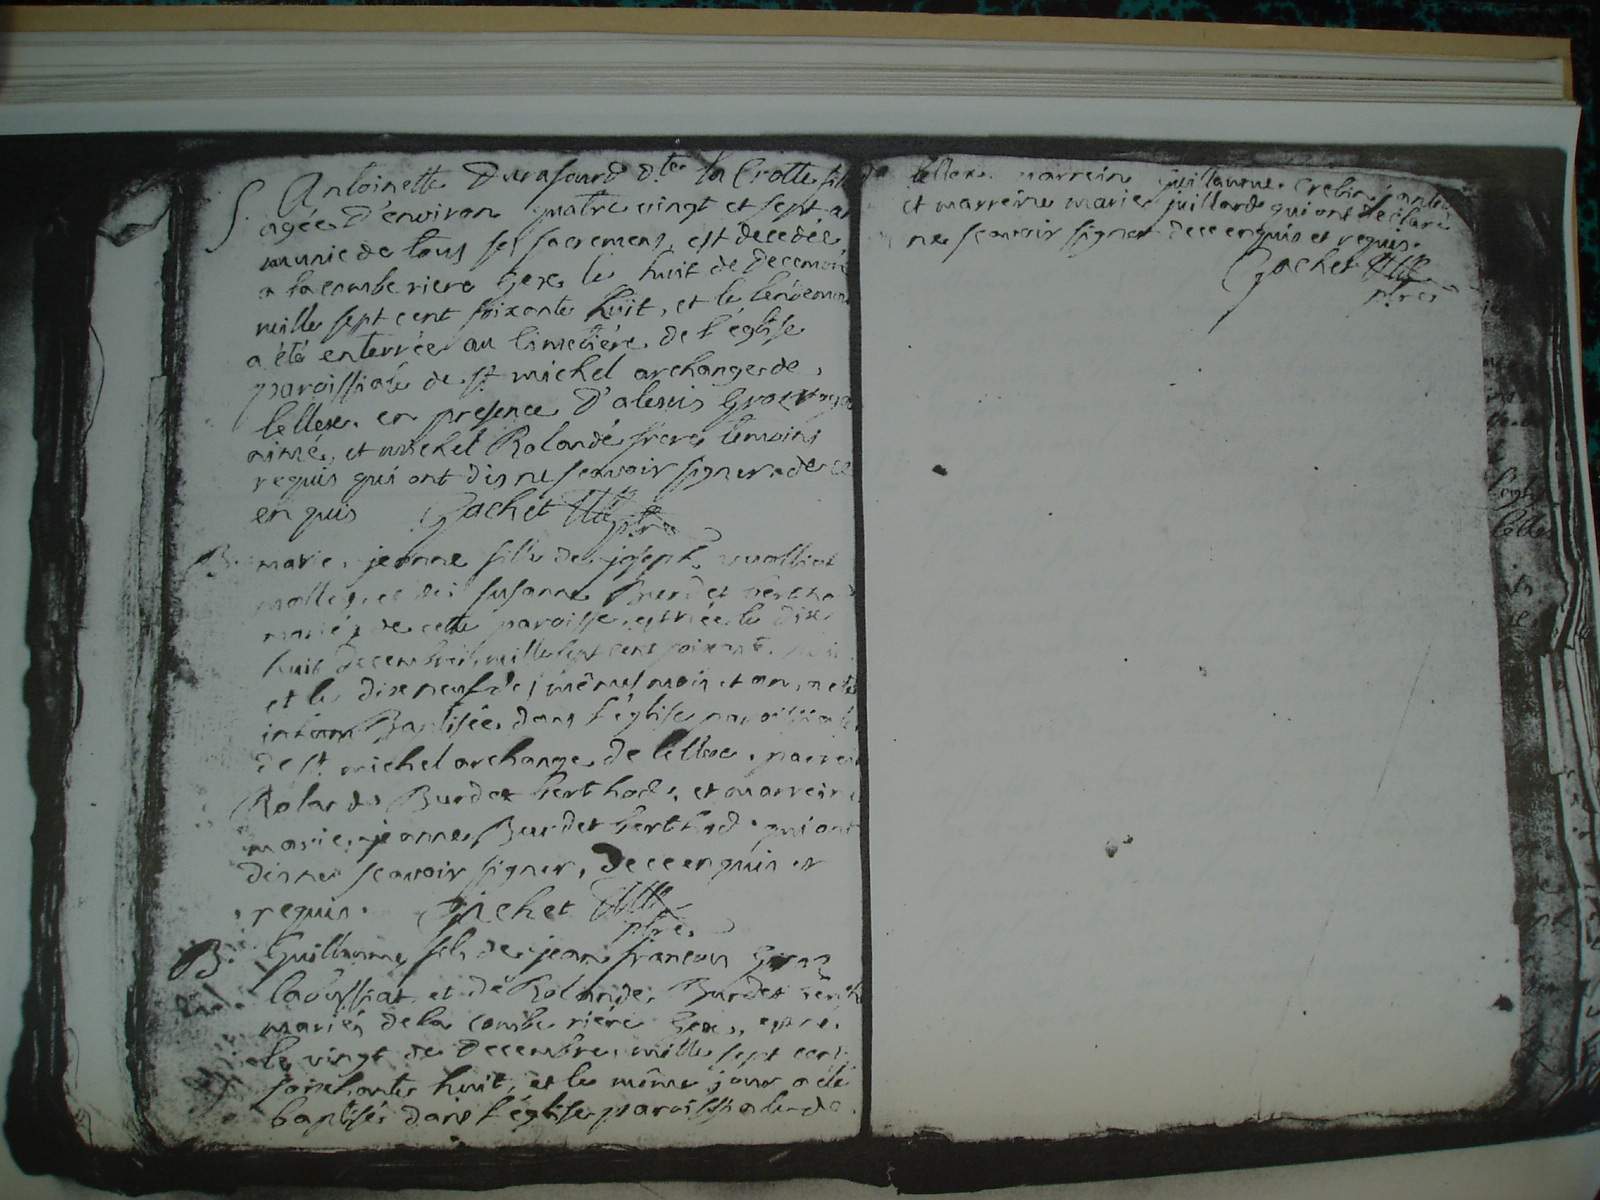 S. Antoinette Durafourd dte la Crotte
agée d'environ quatre vingt et sept
munie de tous ses sacremens, est decedée
a la combe riere Gex le huit de Decem
mille sept cent soixante huit, et le lendemain
a été enterrée au cimetière de l'église
paroissiale de st michel archange de
lellex. en presence d'alexis Gros
aimé, et michel Rolandé frere temoins
requis qui ont dis ne scavoir signer de ce
en quis Gachet ptre
B. marie. jeanne fille de joseph
susanne Burdet
mariés de cette paroisse est née le dix
huit decembre mille sept cent soixante
et le dix neuf de même mois et an, a eté
Baptisée dans l'église paroissiale
de st michel archange de lellex. parrein
Rolande Burdet berthod, et marreine
marie. jeanne Burdet berthod qui ont
dis ne scavoir signer, de ce enquis et
requis. Gachet ptre.
B. Guillaume fils de jean francois Gros
et de Rolande, Burdet
mariés de la combe riére Gex,
le vingt de decembre mille sept cent
soixante huit, et le même jour a été
baptisé dans l'église paroissiale de
lellex. parrein guillaume
et marreine marie juillard qui ont declaré
ne scavoir signer de ce enquis et requis.
Gachet
ptre